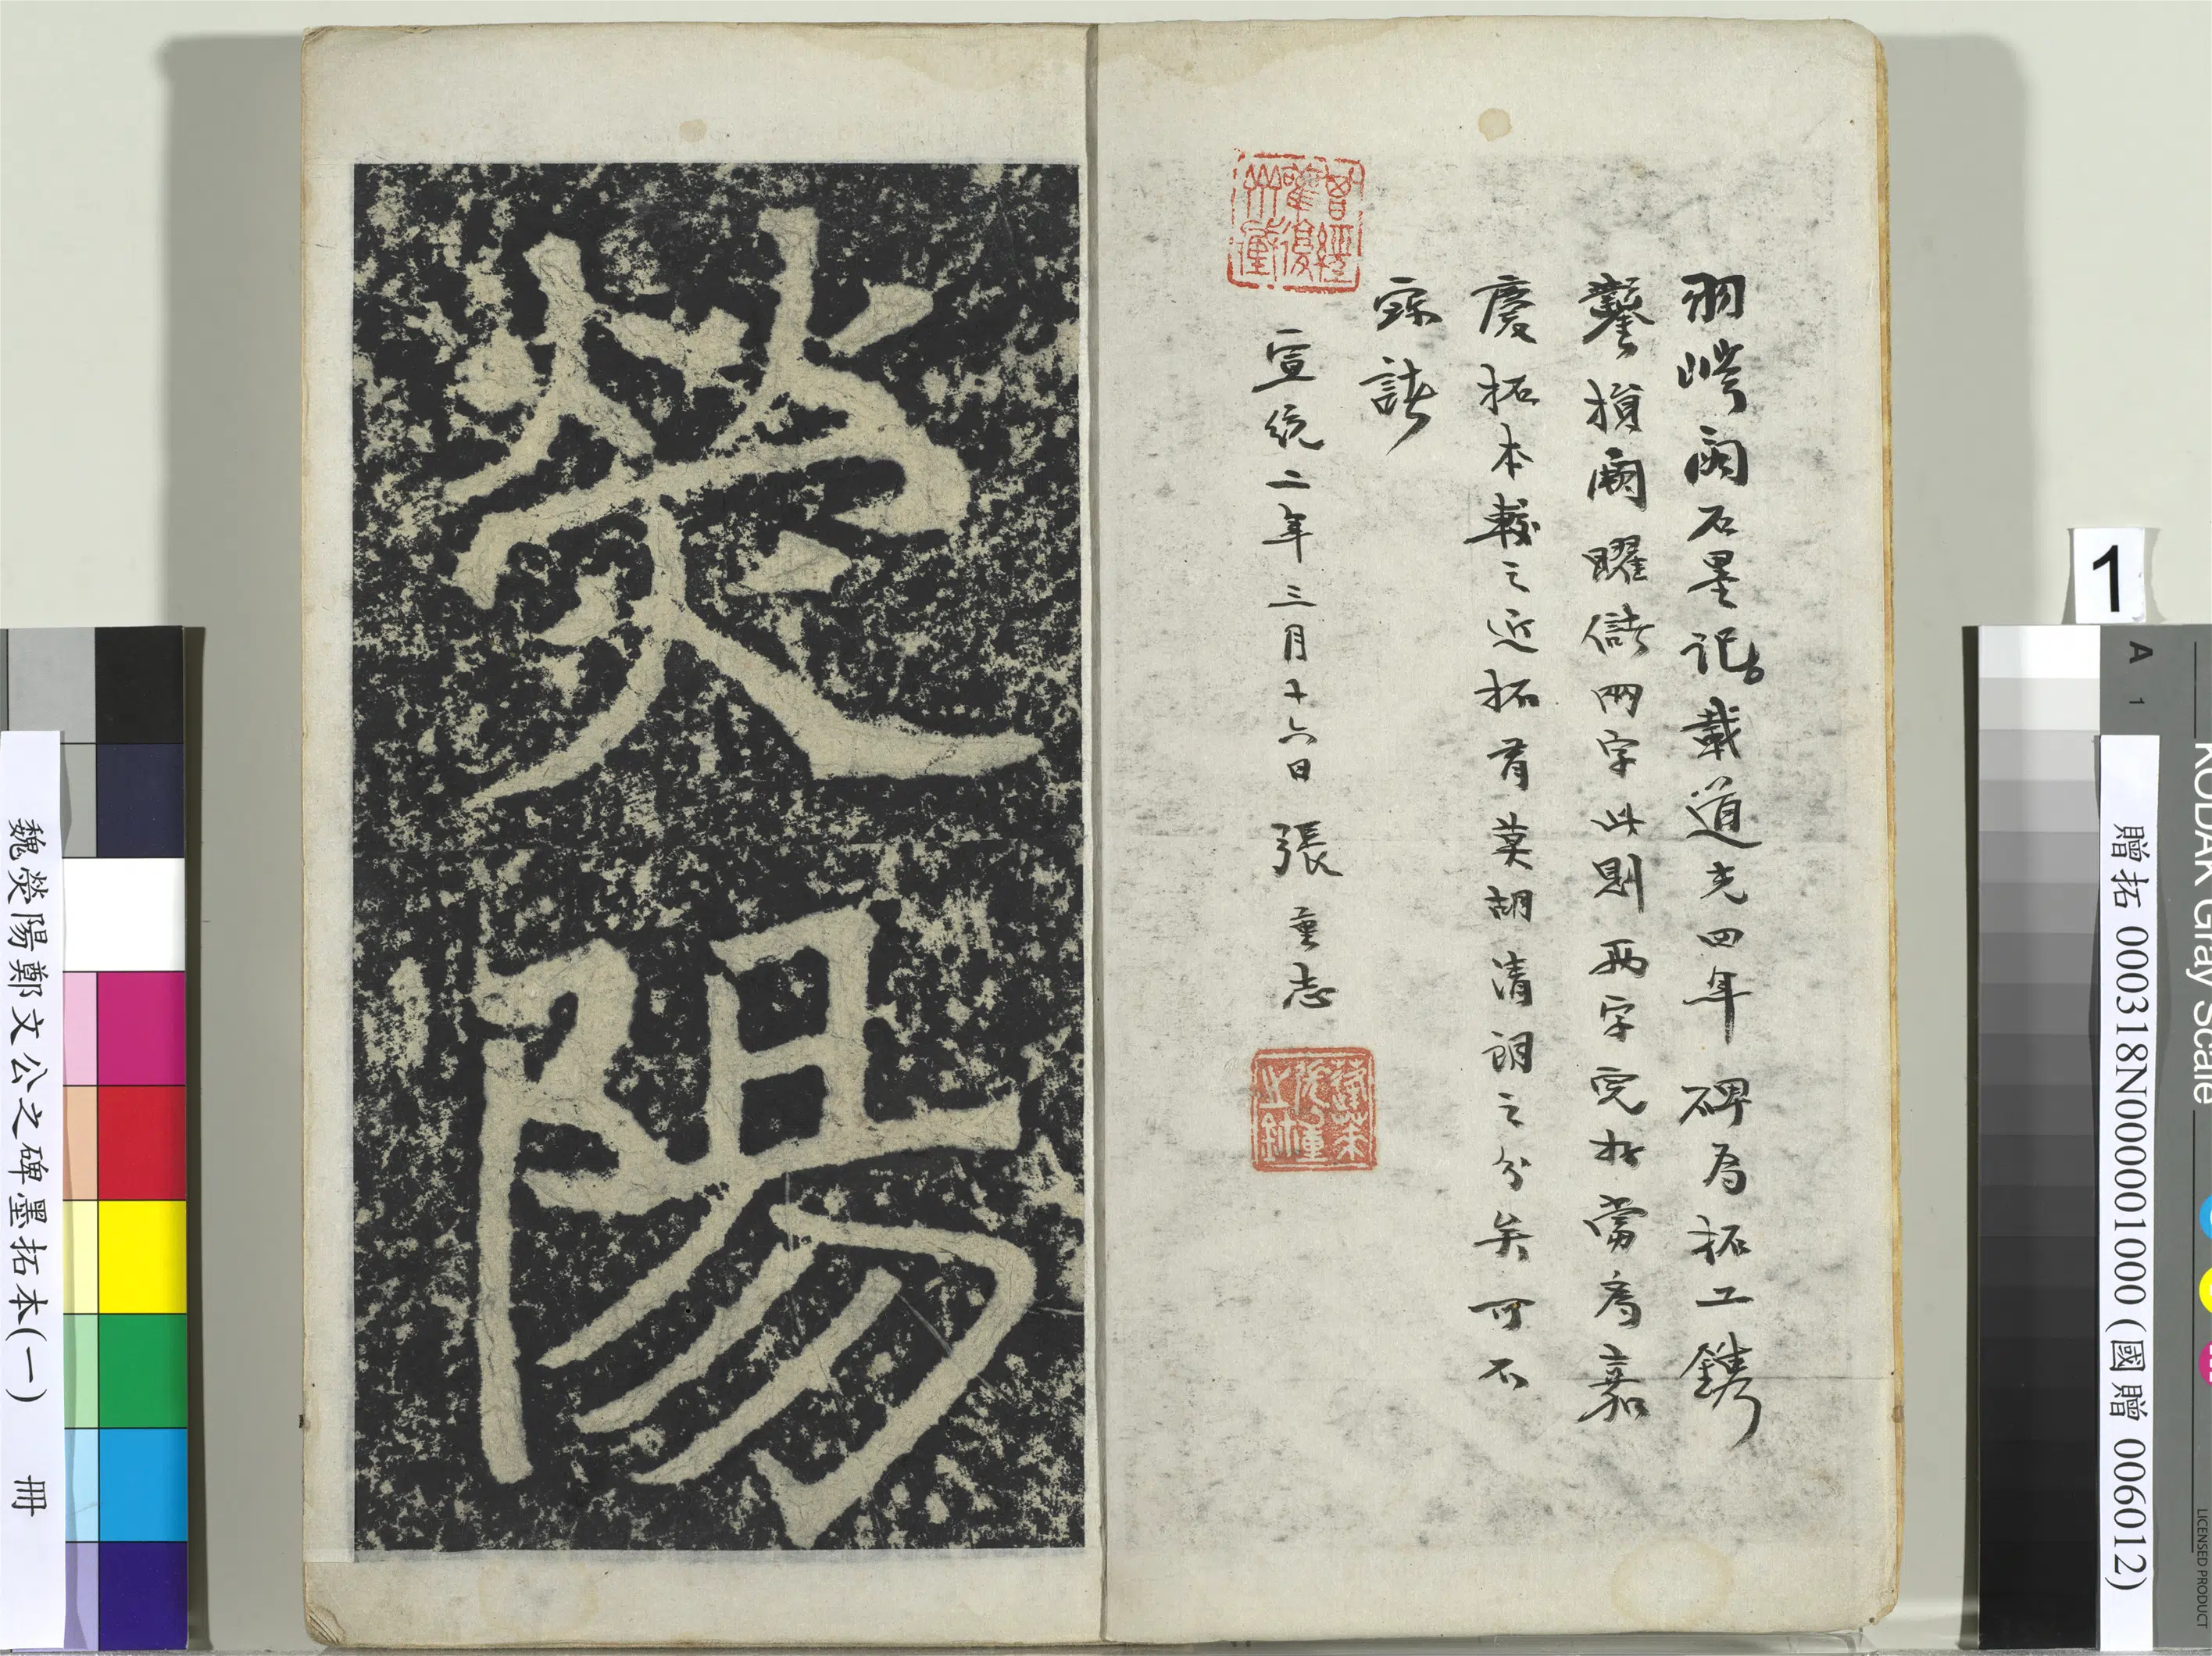 石墨記載道光四年碑為拓工鐫
鑿損闕曜儲兩字此則兩字完好當為嘉
慶拓本較之近拓有莫胡清朗之分矣可不
寶諸
宣統二年三月十六日 張重志
滎陽
魏滎陽鄭文公之碑墨拓本(一) 冊
1
贈拓 000318N000001000 (國贈 006012)
KODAK Gray Scale
A 1
LICENSED PRODUCT